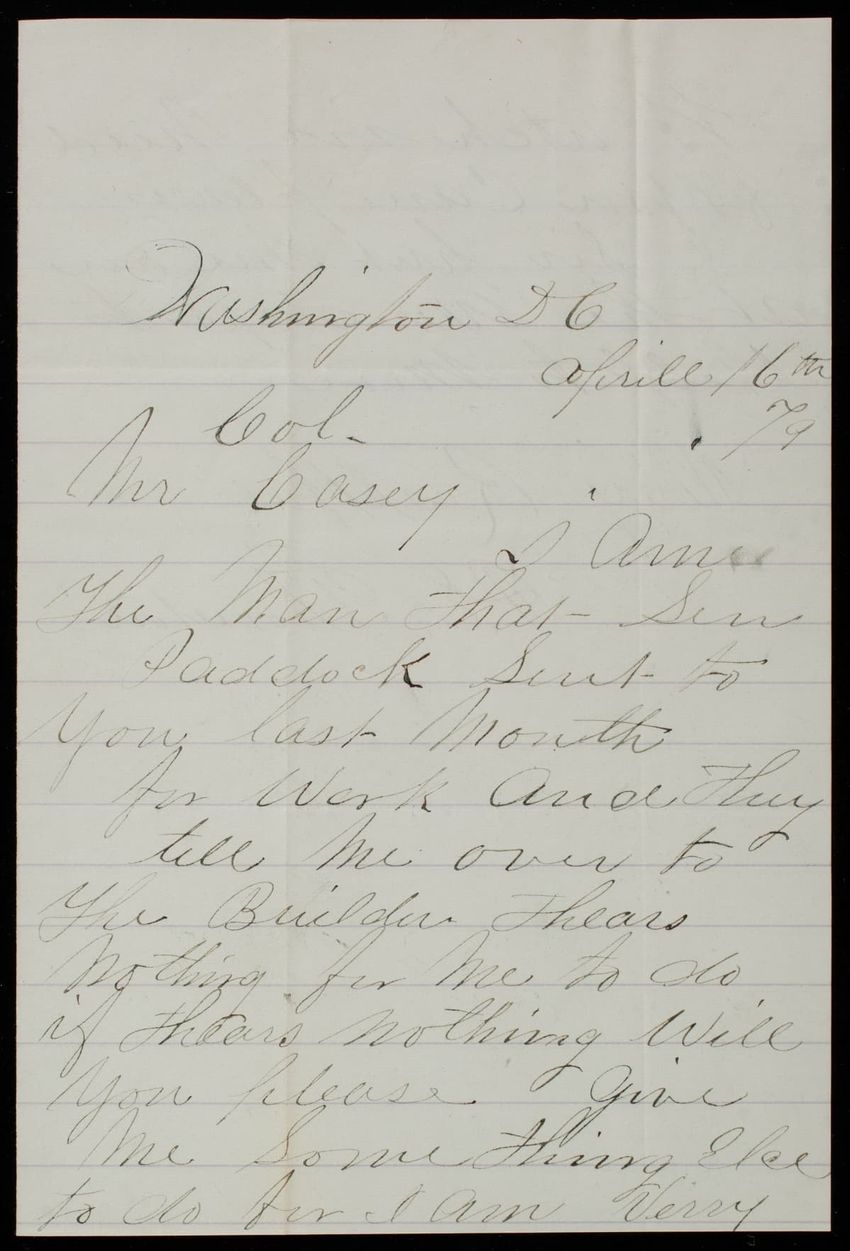 Washington D C
Aprill 16th
79
Col-
Mr Casey
I Am
The Man that Sen
Paddock Sent to
You last Month
for Work And They
tell Me over to
The Builden thears
Nothing for Me to do
if thears nothing Will
You please Give
Me Some thing Elce
to do for I Am Verry